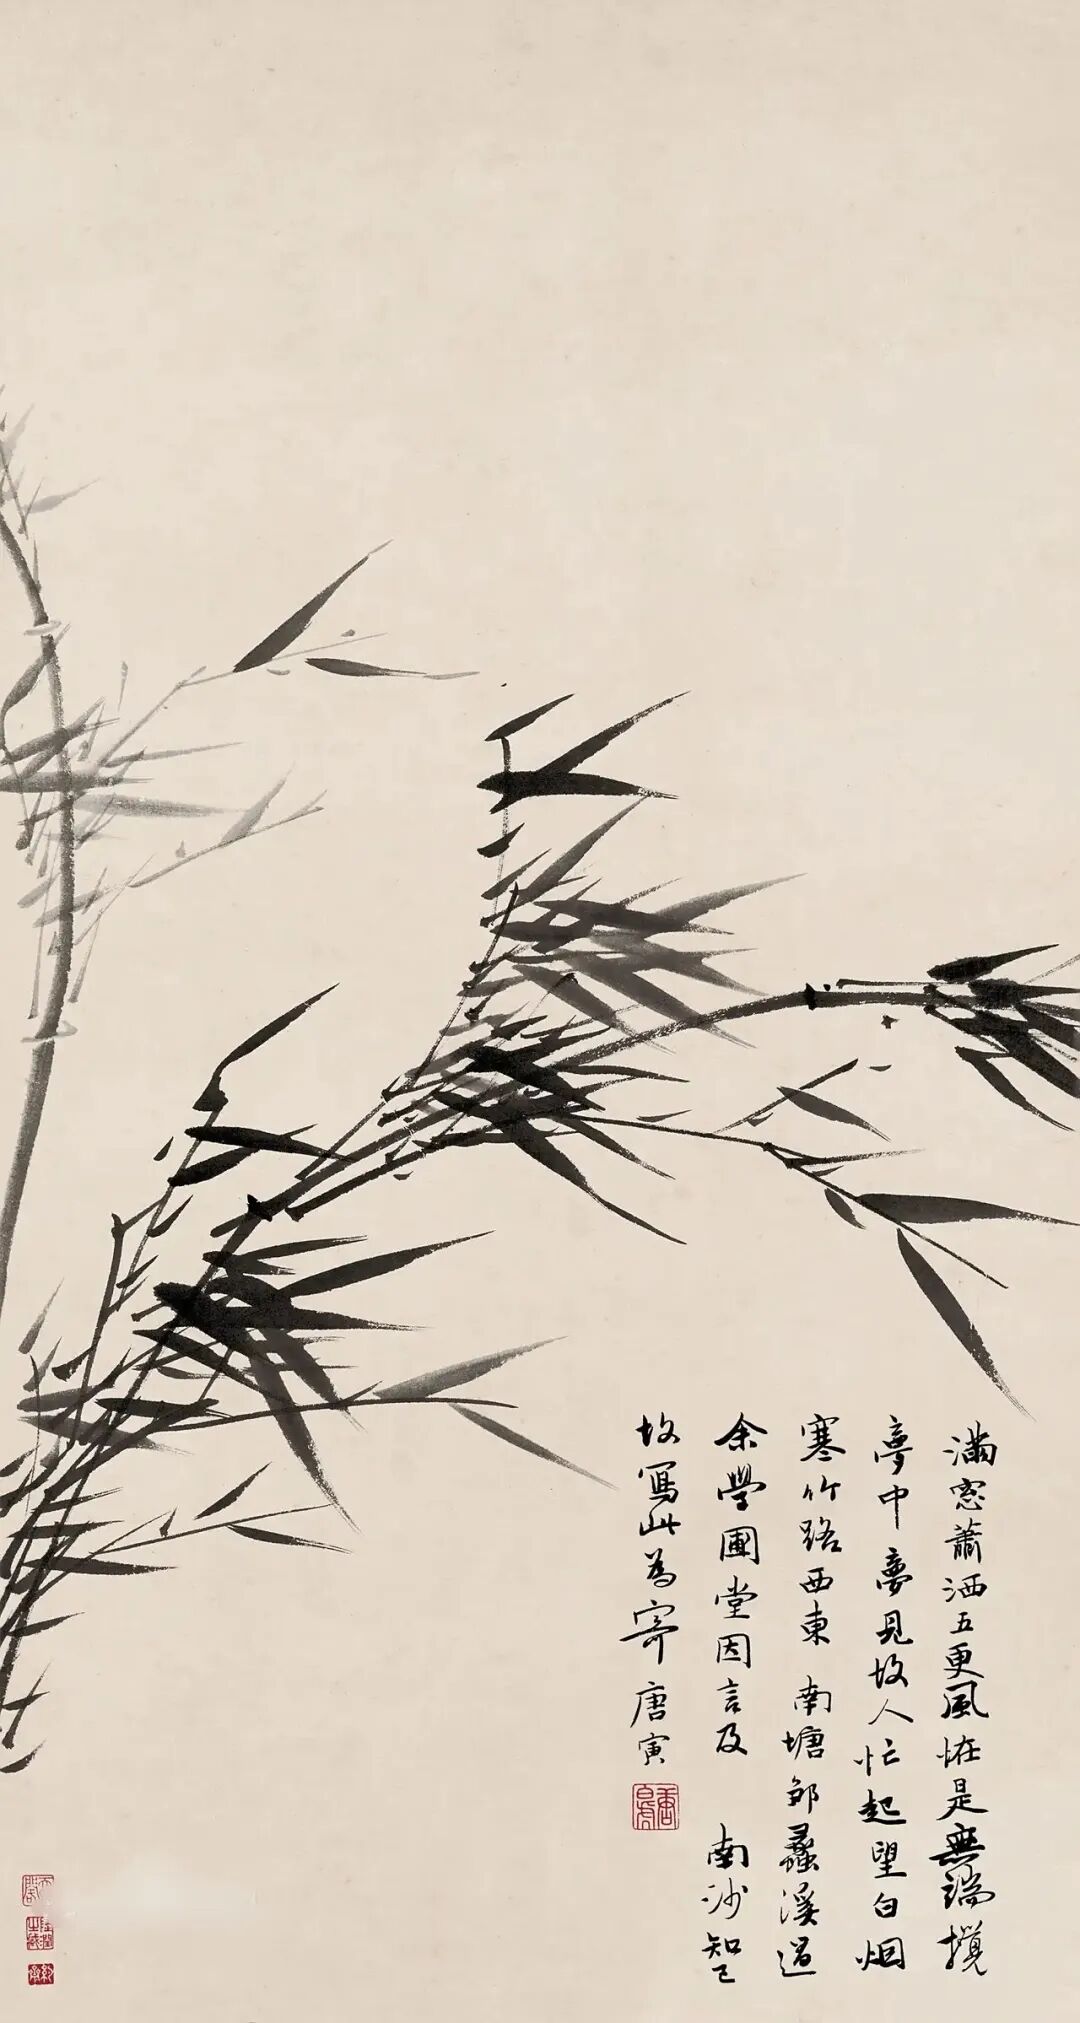 滿窓蕭洒五更風恠是無端攪
夢中夢見故人忙起望白烟
寒竹路西東南塘鄒蠡溪過
余學圃堂因言及南沙知己
故寫此為寄唐寅